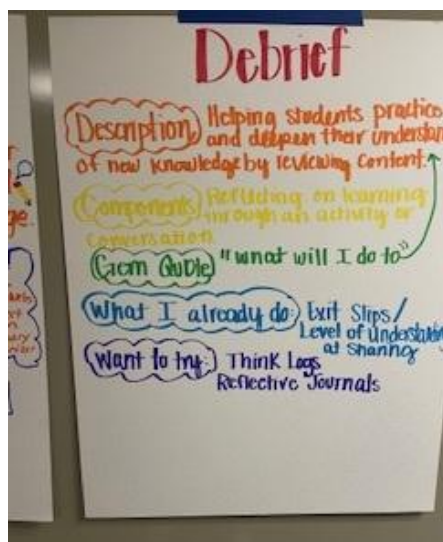 Debrief
Description Helping students practice
and deepen their understan
of new knowledge by reviewing content.
Components Reflecting on learning
through an activity or
conversation
"what will I do to"
What I already do: Exit Slips/
Level of Understan
at Sharing
Want to try: Think Logs
Reflective Journals
ge.